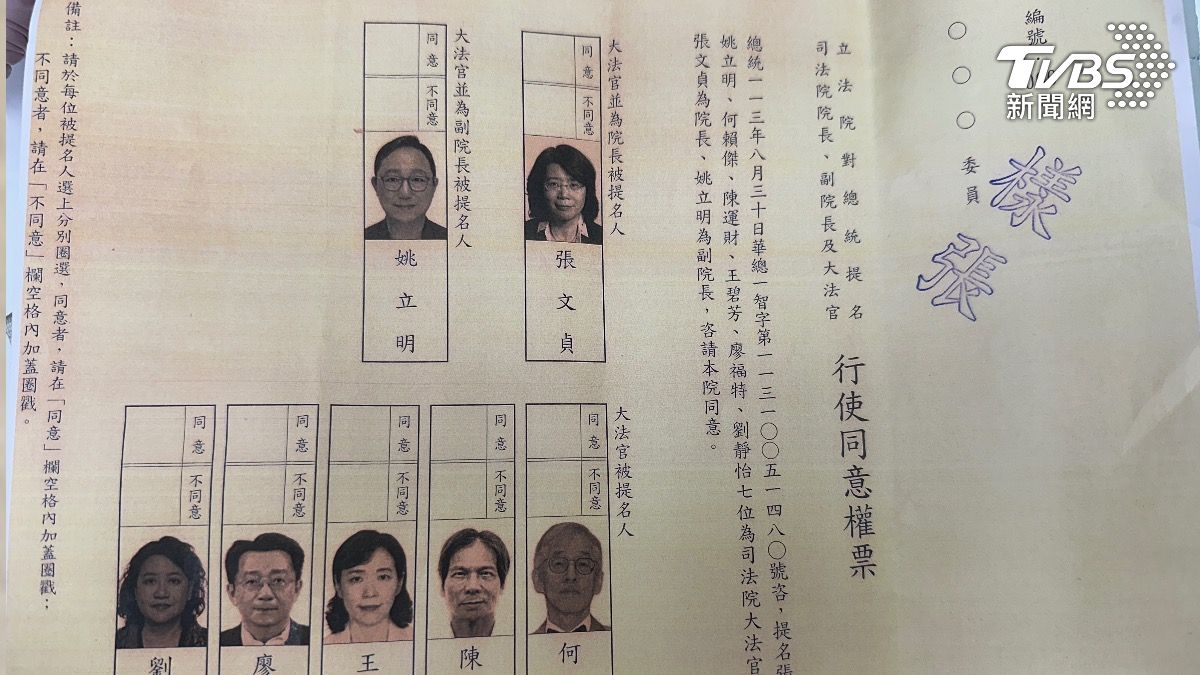 編號
○○○委員
樣張
TVBS
新聞網
立法院對總統提名
司法院院長、副院長及大法官
行使同意權票
總統一一三年八月三十日華總一智字第一一三一○○五一四八○號咨，提名張
姚立明、何賴傑、陳運財、王碧芳、廖福特、劉靜怡七位為司法院大法官
張文貞為院長、姚立明為副院長，咨請本院同意。
大法官並為院長被提名人
同意
不同意
張文貞
大法官並為副院長被提名人
同意
不同意
姚立明
大法官被提名人
同意
不同意
何
同意
不同意
陳
同意
不同意
王
同意
不同意
廖
同意
不同意
劉
備註：請於每位被提名人選上分別圈選，同意者，請在「同意」欄空格內加蓋圈戳；
不同意者，請在「不同意」欄空格內加蓋圈戳。